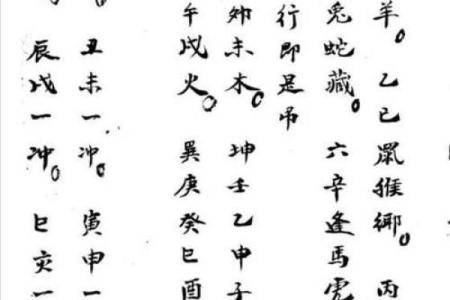 羊。乙己鼠猴鄉。丙
兔蛇藏。六辛逢馬虎
行即是吊
卯未木。坤壬乙申子
午戌火。巽庚癸巳酉
丑未一冲。寅申一
辰戌一冲。巳亥一